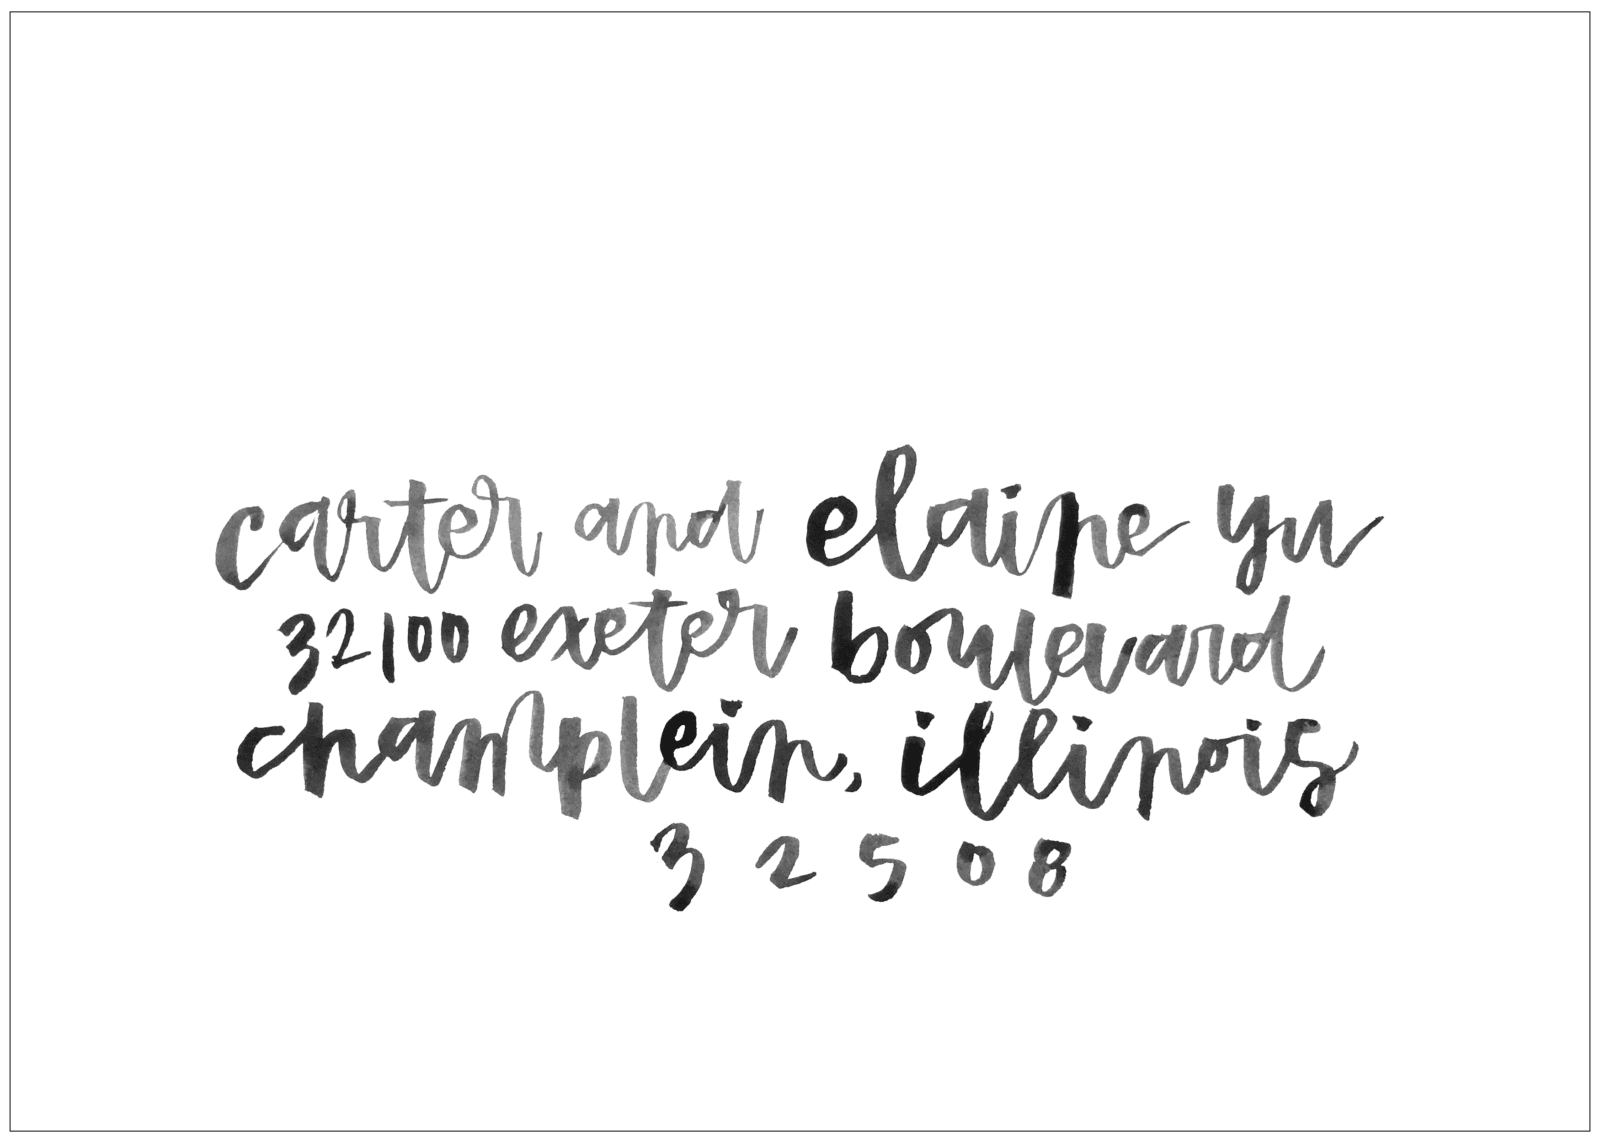 carter and elaine yu
32100 exeter boulevard
champlein, illinois
32508